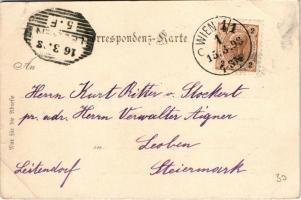 Correspondenz-Karte
WIEN 1/1
15.3.98
LEOBEN
16.3.98
5-F
An
Herrn Kurt Ritter v. Stockert
pr. adr. Herrn Verwalter Aigner
in
Leoben
Leitendorf Steiermark
Nur für die Adresse
30